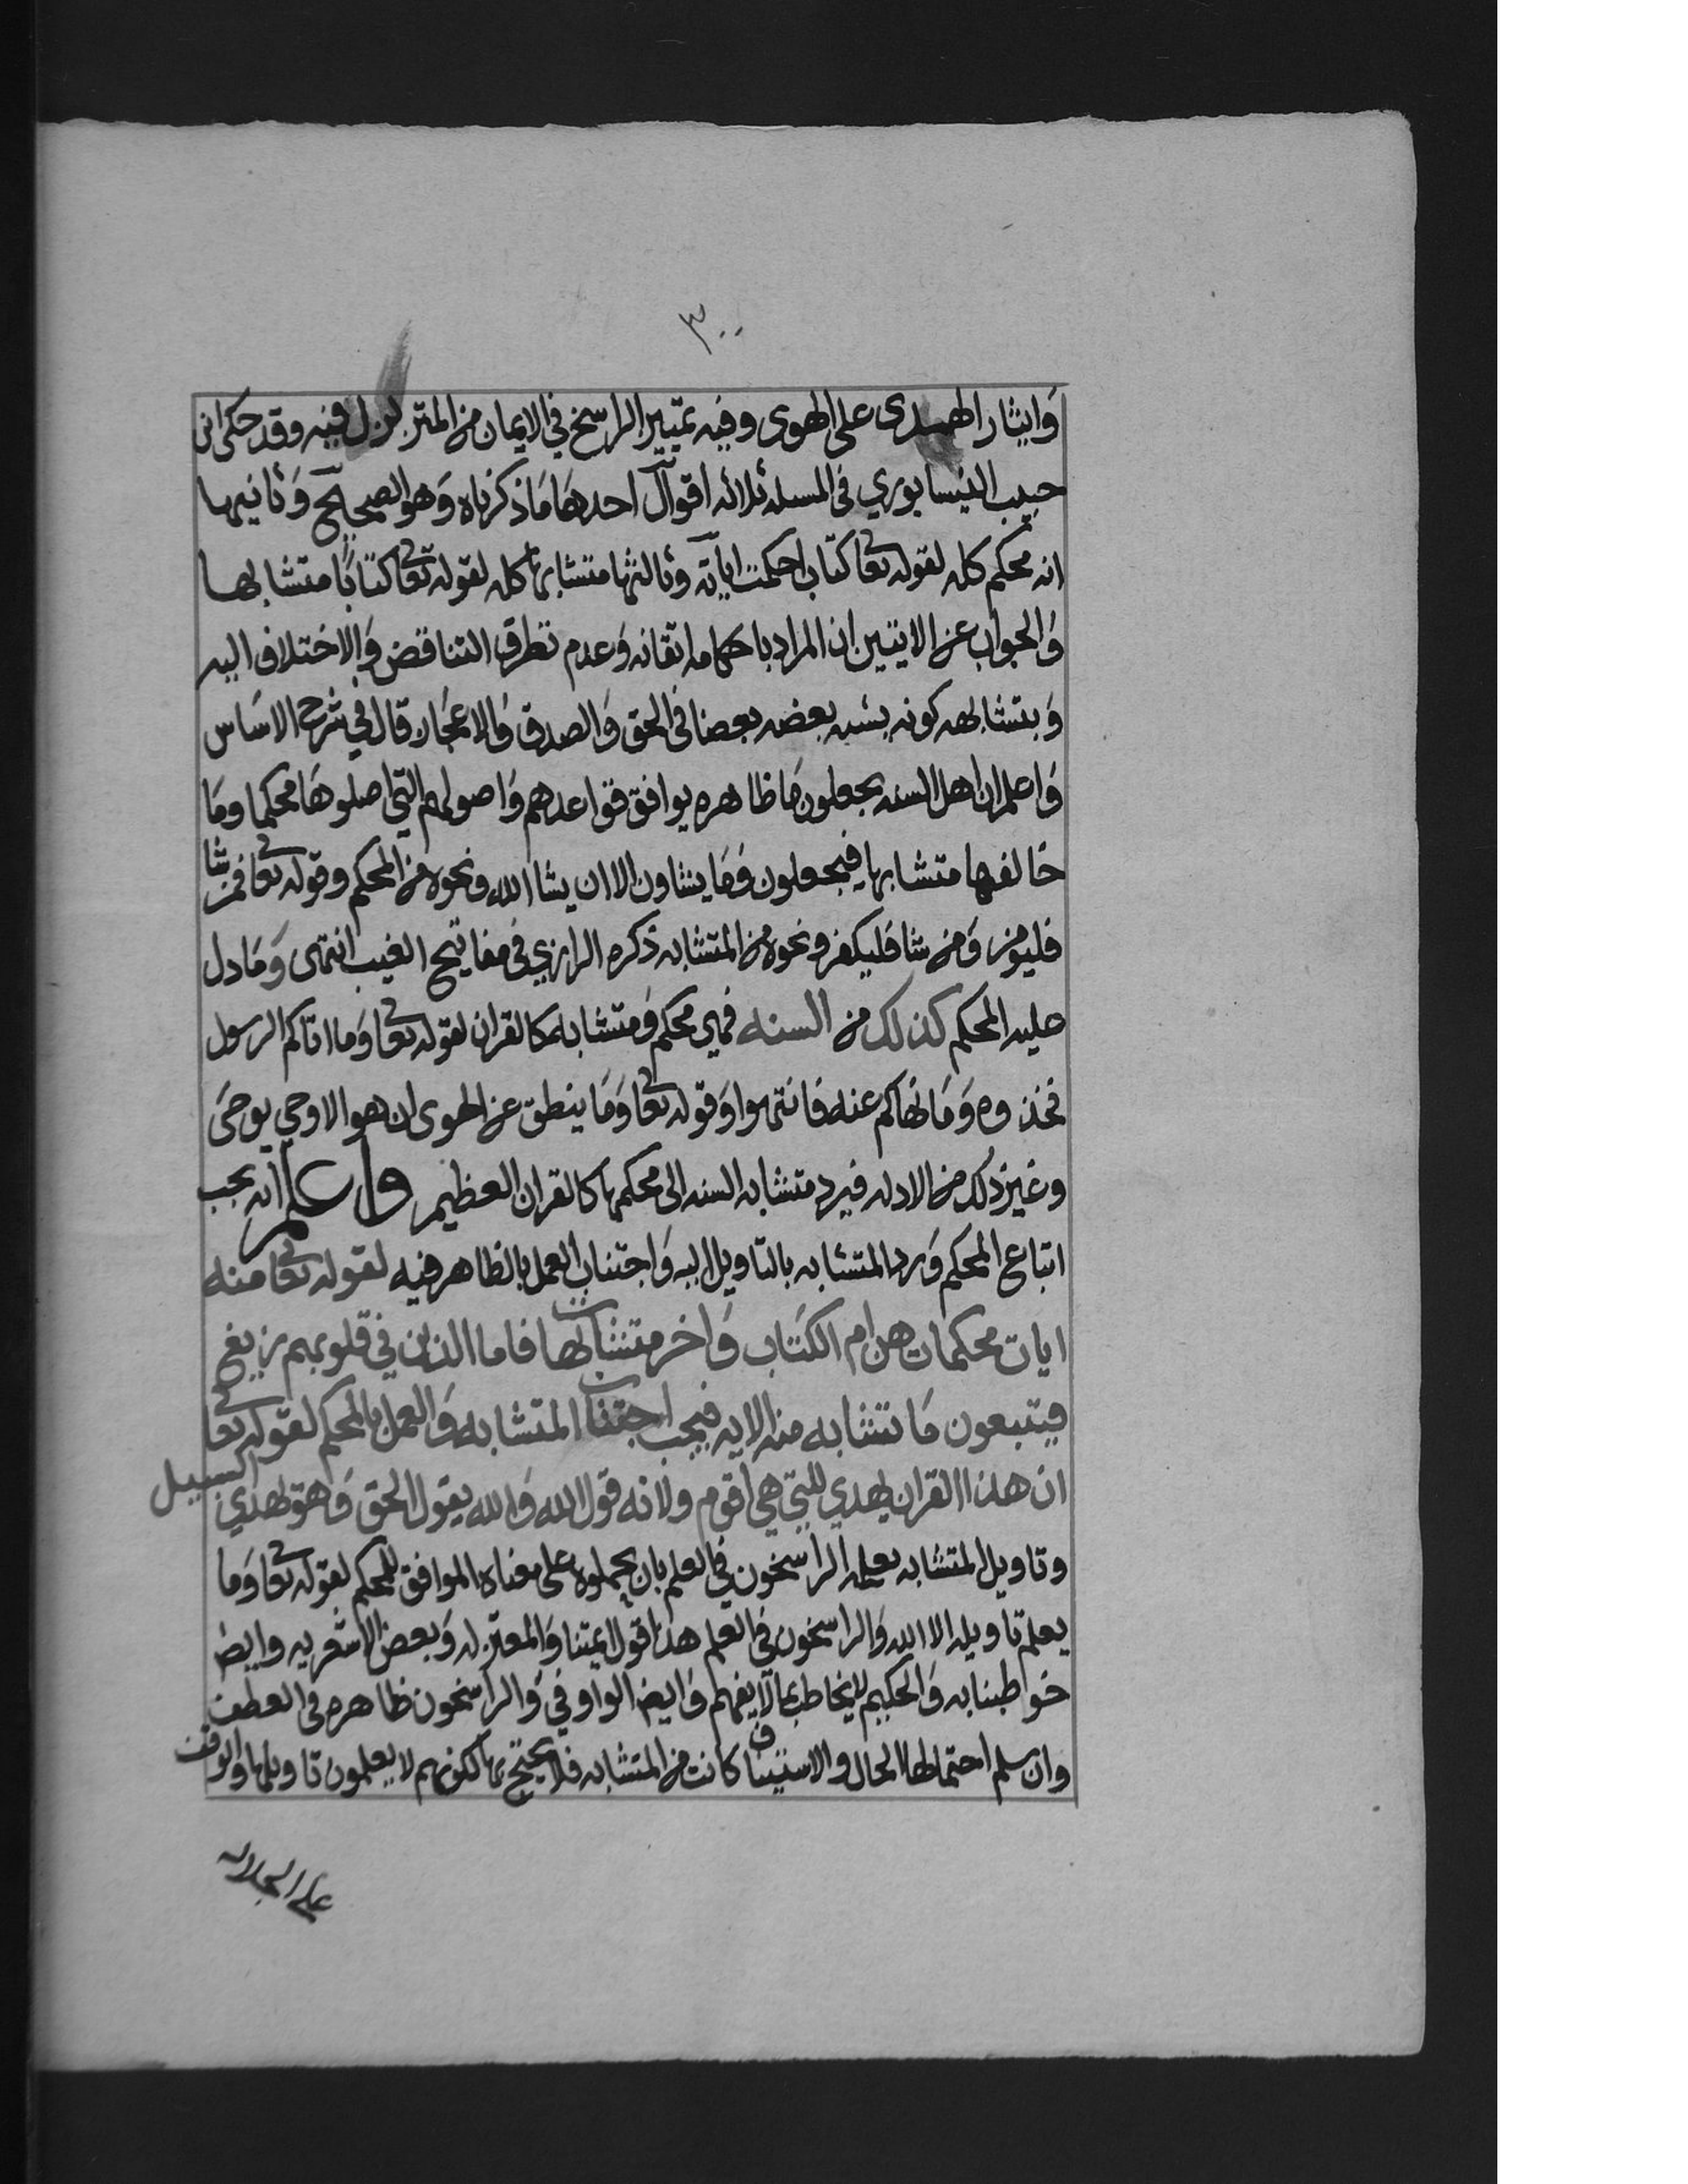 ٣٠٠
وَايثار الهدى على الهوى وفيه تمييز الراسخ في الايمان من المتزلزل فيه وقد حكى ابن
حبيب النيسابوري في المسله ثلاثه اقوال احدها مَا ذكرناه وَهو الصحيح وَثانيها
انه محكم كله لقوله تعا كتاب احكمت اياته وثالثها متشابها كله لقوله تعا كتابًا متشابها
وَالجواب عن الايتين ان المراد باحكامه اتقانه وَعدم تطرق التناقض وَالاختلاف اليه
وَبتشابهه كونه يشبه بعضه بعضا في الحق وَالصدق وَالاعجاز قال في شرح الاسَاس
وَاعلم ان اهل السنه يجعلون مَا ظاهره يوافق قواعدهم وَاصولهم التي اصلوهَا محكما ومَا
خالفها متشابها فيجعلون وَمَا يشاون الا ان يشا الله ونحوه من المحكم وقوله تعا فمن شا
فليومن وَمن شا فليكفر ونحوه من المتشابه ذكره الرازي في مفاتيح الغيب انتهى وَمَا دل
عليه المحكم كذلك من السنه فهي محكم وَمتشابه كالقران لقوله تعا وَما اتاكم الرسول
فخذوه وَمَا نهاكم عنه فانتهوا وَقوله تعا وَمَا ينطق عن الهوى ان هو الا وحي يوحَى
وغير ذلك من الادله فيرد متشابه السنه الى محكمها كالقران العظيم واعلم انه يجب
اتباع المحكم وَرد المتشابه بالتاويل اليه وَاجتناب العمل بالظاهر فيه لقوله تعا منه
ايات محكمات هن ام الكتاب وَاخر متشابهات فاما الذين في قلوبهم زيغ
فيتبعون مَا تشابه منه الايه فيجب اجتناب المتشابه وَالعمل بالمحكم لقوله تعا
ان هذا القران يهدي للتي هي اقوم ولانه قول الله وَالله يقول الحق وَهو يهدي السبيل
وتاويل المتشابه يعلمه الراسخون في العلم بان يحملوه على معناه الموافق للمحكم لقوله تعا وَما
يعلم تاويله الا الله وَالراسخون في العلم هذا قول ايمتنا وَالمعتزله وَبعض الاشعريه وايضا
خوطبنا به وَالحكيم لا يخاطب بما لا يفهم وَايضا الواو في وَالراسخون ظاهره في العطف
وان سلم احتمالها الحال والاستيناف كانت من المتشابه فلا يحتج بها لكونهم لا يعلمون تاويلها والوقف
على الجلاله